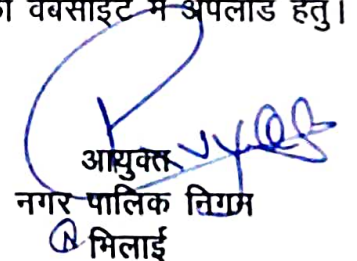 वेबसाइट में अपलोड हेतु।
आयुक्त
नगर पालिक निगम
भिलाई